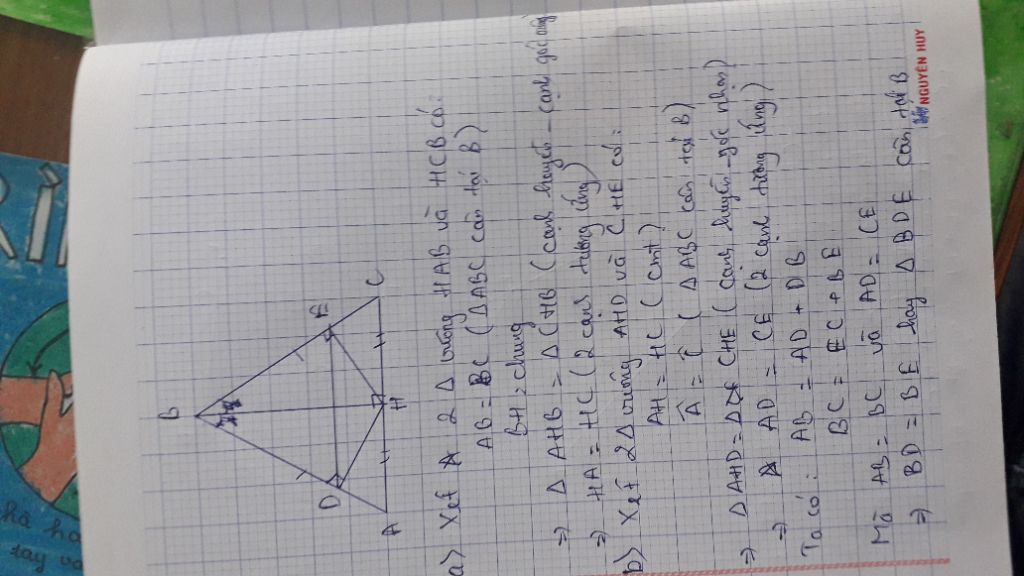 B
D
E
A
H
C
a) Xét 2 Δ vuông HAB và HCB có:
AB = BC (ΔABC cân tại B)
BH = chung
=> Δ AHB = Δ CHB (cạnh huyền - cạnh góc vuông)
=> HA = HC (2 cạnh tương ứng)
b) Xét 2Δ vuông AHD và CHE có:
AH = HC (cmt)
Â = Ĉ (ΔABC cân tại B)
=> ΔAHD = Δ CHE (cạnh huyền - góc nhọn)
=> AD = CE (2 cạnh tương ứng)
Ta có: AB = AD + DB
BC = EC + BE
Mà AB = BC và AD = CE
=> BD = BE hay Δ BDE cân tại B
NGUYÊN HUY
hà
tay